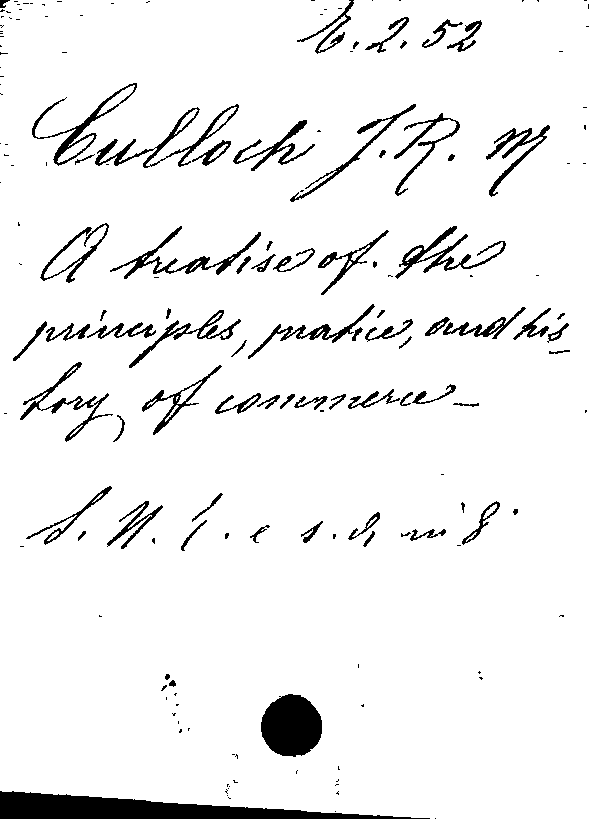 E.2.52
Culloch J.R. M
A treatise of. the
principles, pratice, and his
tory, of commerce_
S. N. T. e s. d, in 8°